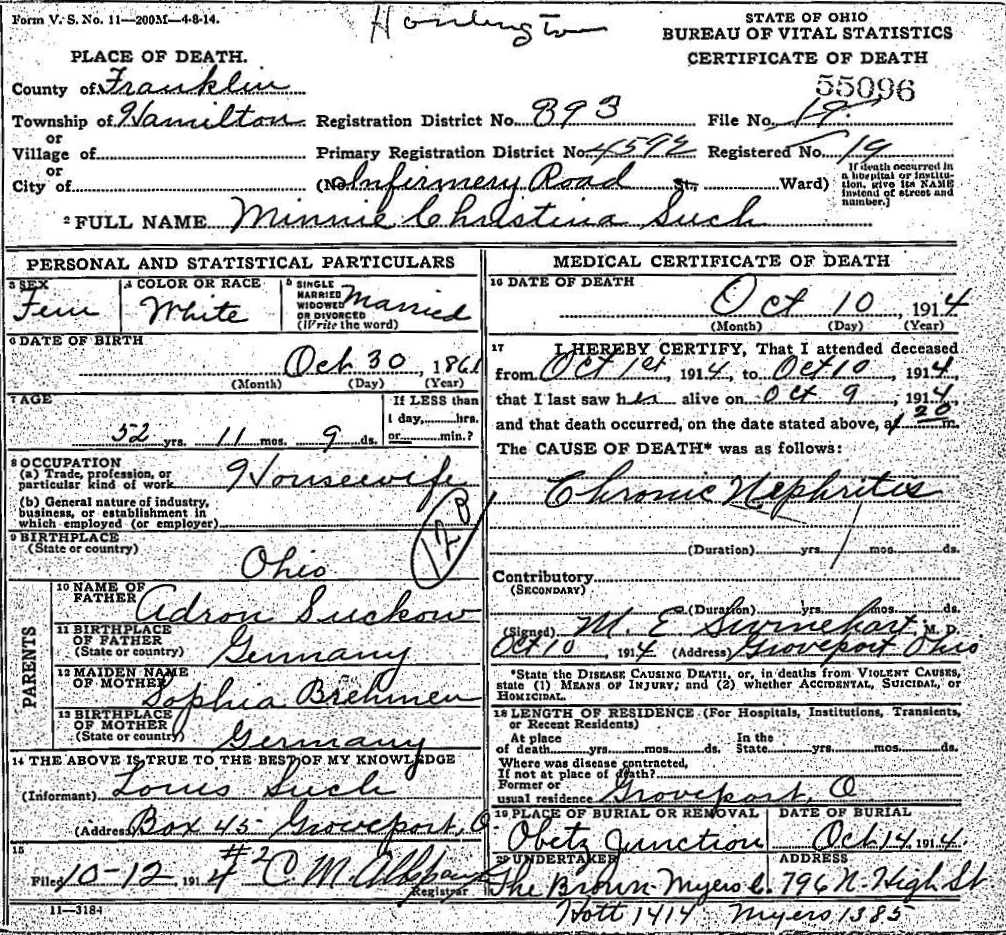 Form V. S. No. 11—200M—4-8-14.
STATE OF OHIO
BUREAU OF VITAL STATISTICS
CERTIFICATE OF DEATH
55096
PLACE OF DEATH.
County of Franklin
Township of Hamilton Registration District No. 893 File No. 19
or
Village of Primary Registration District No. 4592 Registered No. 19
or
City of (No Infirmery Road St. Ward)
If death occurred in
a hospital or institu-
tion, give its NAME
instead of street and
number.]
2 FULL NAME Minnie Christina Such
PERSONAL AND STATISTICAL PARTICULARS
3 SEX
Fem
4 COLOR OR RACE
White
5 SINGLE
MARRIED
WIDOWED
OR DIVORCED
(Write the word)
Married
6 DATE OF BIRTH
Oct 30, 1861
(Month) (Day) (Year)
7 AGE
52 yrs. 11 mos. 9 ds.
If LESS than
1 day, hrs.
or min.?
8 OCCUPATION
(a) Trade, profession, or
particular kind of work Housewife
(b) General nature of industry,
business, or establishment in
which employed (or employer)
12 B
9 BIRTHPLACE
(State or country)
Ohio
PARENTS
10 NAME OF
FATHER Adron Suckow
11 BIRTHPLACE
OF FATHER
(State or country) Germany
12 MAIDEN NAME
OF MOTHER Sophia Brehmen
13 BIRTHPLACE
OF MOTHER
(State or country) Germany
14 THE ABOVE IS TRUE TO THE BEST OF MY KNOWLEDGE
(Informant) Louis Such
(Address Box 45 Groveport, O
15
Filed 10-12 1914 #2 C M
Registrar
11—3184
MEDICAL CERTIFICATE OF DEATH
16 DATE OF DEATH
Oct 10, 1914
(Month) (Day) (Year)
17 I HEREBY CERTIFY, That I attended deceased
from Oct 1st, 1914, to Oct 10, 1914,
that I last saw her alive on Oct 9, 1914,
and that death occurred, on the date stated above, at 1 20 m.
The CAUSE OF DEATH* was as follows:
Chronic Nephritis
(Duration) yrs. mos. ds.
Contributory
(SECONDARY)
(Duration) yrs. mos. ds.
(Signed) M. E. Swinehart, M. D.
Oct 10, 1914 (Address) Groveport Ohio
*State the DISEASE CAUSING DEATH, or, in deaths from VIOLENT CAUSES,
state (1) MEANS OF INJURY; and (2) whether ACCIDENTAL, SUICIDAL, or
HOMICIDAL.
18 LENGTH OF RESIDENCE (For Hospitals, Institutions, Transients,
or Recent Residents)
At place In the
of death yrs. mos. ds. State yrs. mos. ds.
Where was disease contracted,
If not at place of death?
Former or
usual residence Groveport, O
19 PLACE OF BURIAL OR REMOVAL
Obetz Junction
DATE OF BURIAL
Oct 14, 1914
20 UNDERTAKER
The Brown-Myers Co.
ADDRESS
796 N. High St
Hott 1414 Myers 1385